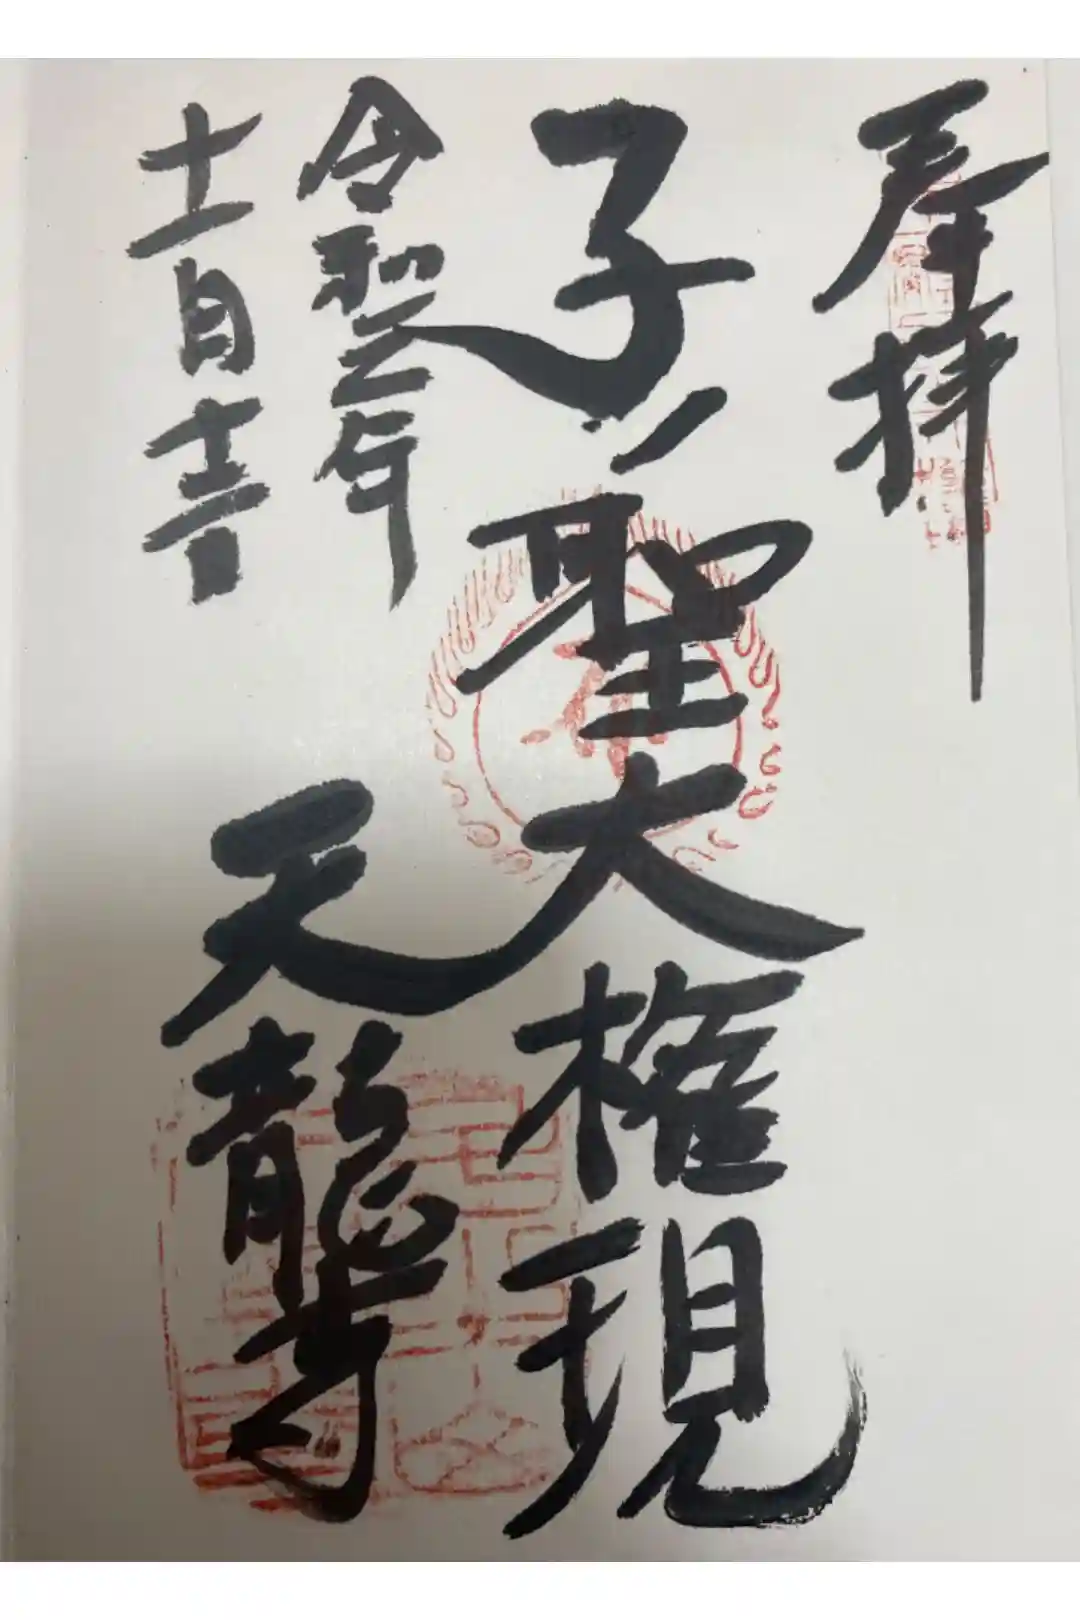 奉拝
子ノ聖大権現
令和二年
十一月
天龍寺